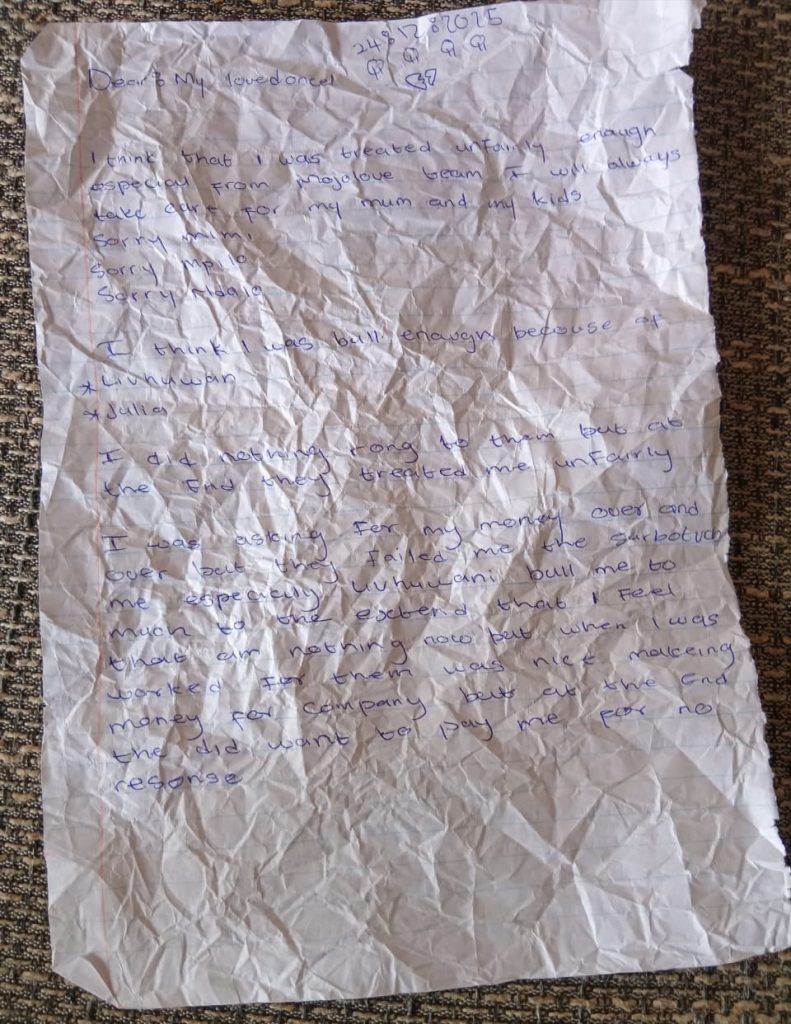 248 12 82025
Dear's My lovedonce!
I think that I was treated unfairly enough
especial from mojolove team I will always
take care for my mum and my kids
Sorry mimi
Sorry Mpilo
Sorry
I think I was bull enough becouse of
*Livhuwan
*Julia
I did nothing rong to them but at
the End they treated me unfairly
I was asking for my money over and
over but they failed me the
me especially Livhuwani bull me to
much to the extend that I feel
that am nothing now but when I was
worked for them was nice makeing
money for company but at the End
the did want to pay me for no
resonse